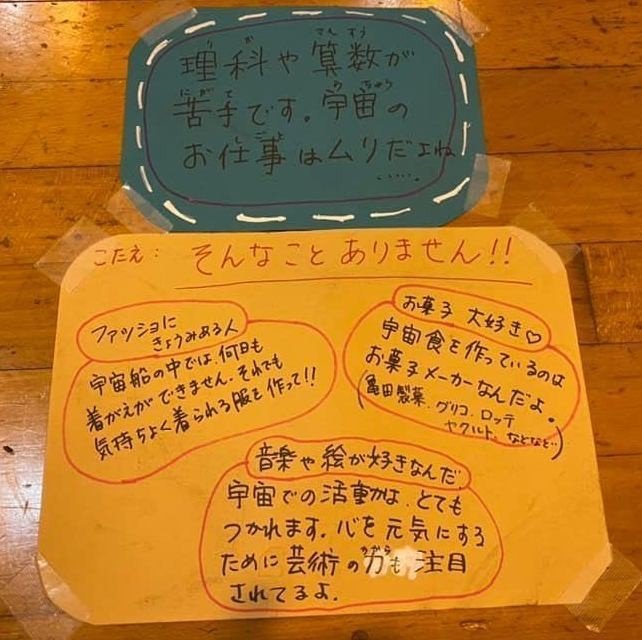 理科や算数が
苦手です。宇宙の
お仕事はムリだよね
‥‥。
こたえ: そんなことありません!!
ファッショに
きょうみある人
宇宙船の中では、何日も
着がえができません。それでも
気持ちよく着られる服を作って!!
お菓子 大好き♡
宇宙食を作っているのは
お菓子メーカーなんだよ。
(亀田製菓、グリコ、ロッテ
ヤクルト、などなど…)
音楽や絵が好きなんだ
宇宙での活動は、とても
つかれます。心を元気にする
ために芸術の力も注目
されてるよ。